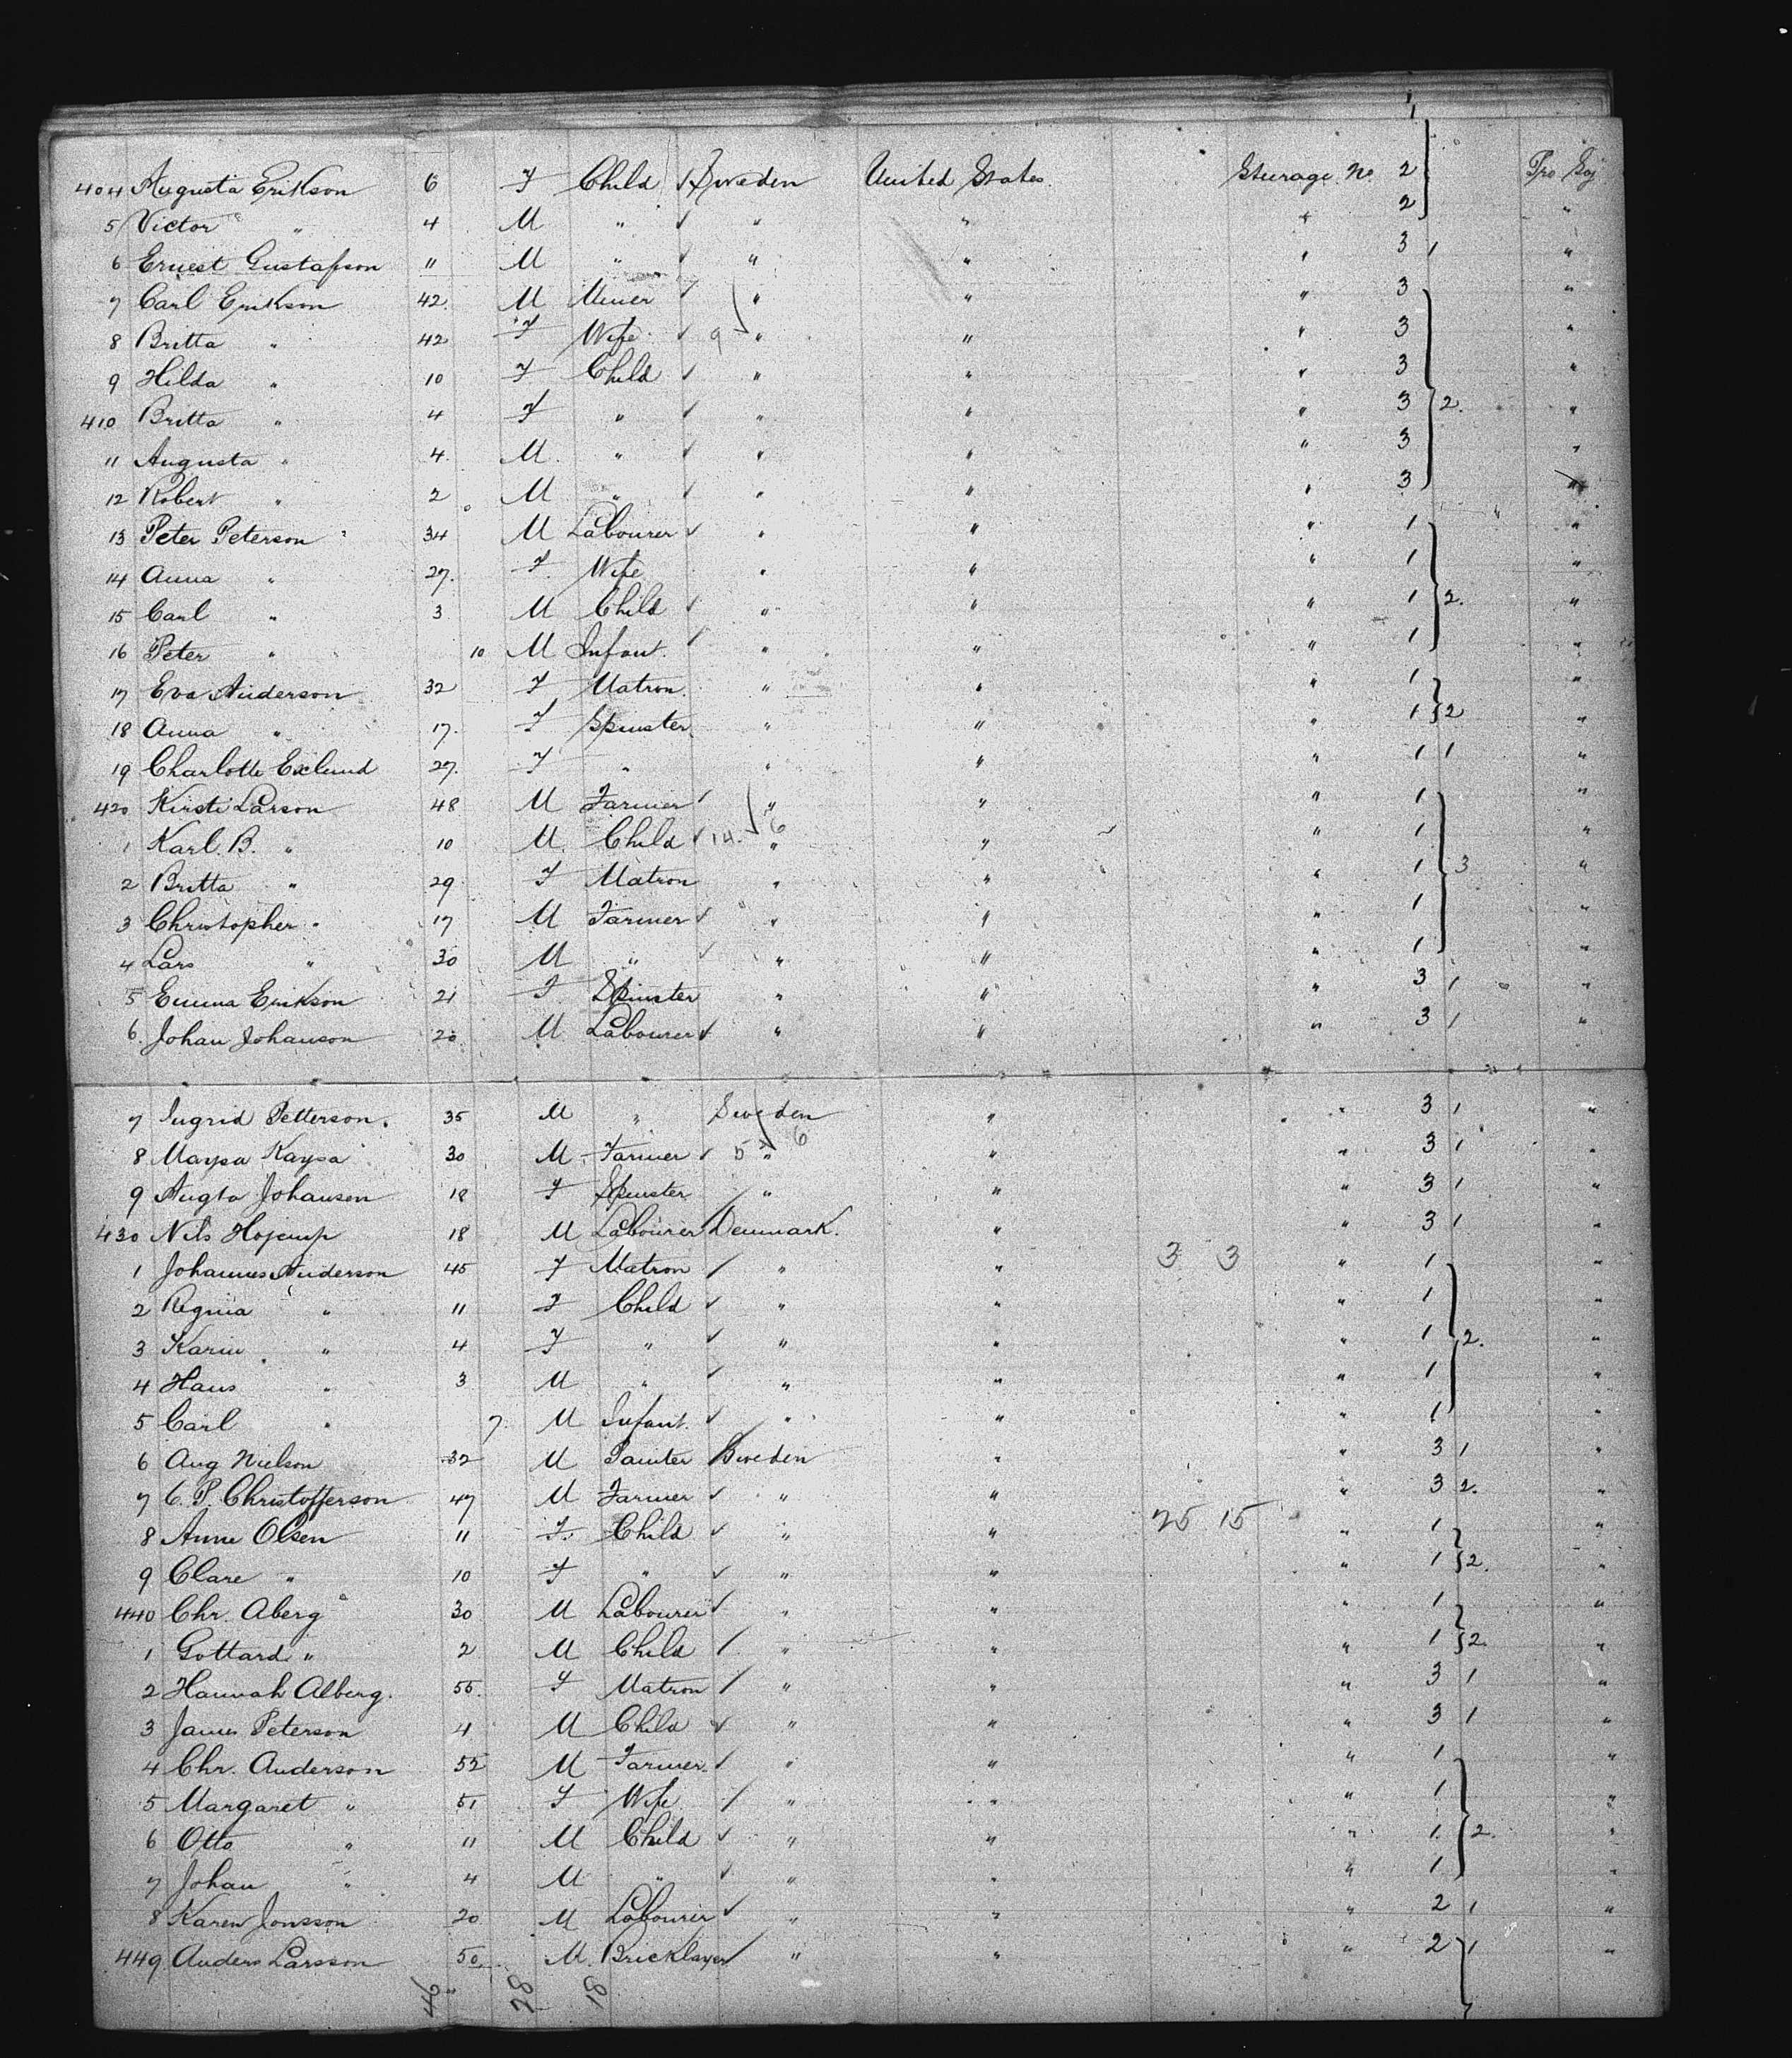 404 Augusta Erikson 6 F Child Sweden United States Steurage No 2 Pro Soj
5 Victor " 4 M " " " " 2 "
6 Ernest Gustafson 11 M " " " " 3 1 "
7 Carl Erikson 42 M Miner " " " 3 "
8 Britta " 42 F Wife 9 " " " 3 "
9 Hilda " 10 F Child " " " 3 "
410 Britta " 4 F " " " " 3 2. "
11 Augusta " 4 M " " " " 3 "
12 Robert " 2 M " " " " 3 "
13 Peter Peterson 34 M Labourer " " " 1 "
14 Anna " 27. F. Wife " " " 1 "
15 Carl " 3 M Child " " " 1 2. "
16 Peter " 10 M Infant. " " " 1 "
17 Eva Anderson 32 F Matron. " " " 1 "
18 Anna " 17. F Spinster " " " 1 2 "
19 Charlotte Exlund 27. F " " " " 1 1 "
420 Kirsti Larson 48 M Farmer " " " 1 "
1 Karl. B. " 10 M. Child 14. 6 " " " 1 "
2 Britta " 29 F Matron " " " 1 3 "
3 Christopher " 17 M Farmer " " " 1 "
4 Lars " 30 M " " " " 1 "
5 Emma Erikson 21 F. Spinster " " " 3 1 "
6. Johan Johanson 20 M Labourer " " " 3 1 "
7 Ingrid Petterson. 35 M " Sweden " " 3 1 "
8 Maysa Kaysa 30 M. Farmer 5 " 6 " " 3 1 "
9 Augta Johansen 18 F Spinster " " " 3 1 "
430 Nils Hojemp 18 M Labourer Denmark. " " 3 1 "
1 Johannes Anderson 45 F Matron " " 3 3 " 1 "
2 Regina " 11 F Child " " " 1 "
3 Karin " 4 F " " " " 1 2. "
4 Hans " 3 M " " " " 1 "
5 Carl " 7. M Infant. " " " 1 "
6 Aug Nielson 32 M Painter Sweden " " 3 1 "
7 C. P. Christofferson 47 M Farmer " " " 3 2. "
8 Anne Olsen 11 F. Child " " 25 15 " 1 "
9 Clare " 10 F " " " " 1 2. "
440 Chr. Aberg 30 M Labourer " " " 1 "
1 Gottard " 2 M Child " " " 1 2. "
2 Hannah Alberg. 55. F Matron " " " 3 1 "
3 James Peterson 4 M Child " " " 3 1 "
4 Chr. Anderson 52 M Farmer. " " " 1 "
5 Margaret " 51 F Wife " " " 1 "
6 Otto " 11 M Child " " " 1. 2. "
7 Johan " 4 M " " " " 1 "
8 Karen Jonsson 20 M Labourer " " " 2 1 "
449 Anders Larsson 50 M. Bricklayer " " " 2 1 "
46 28 18